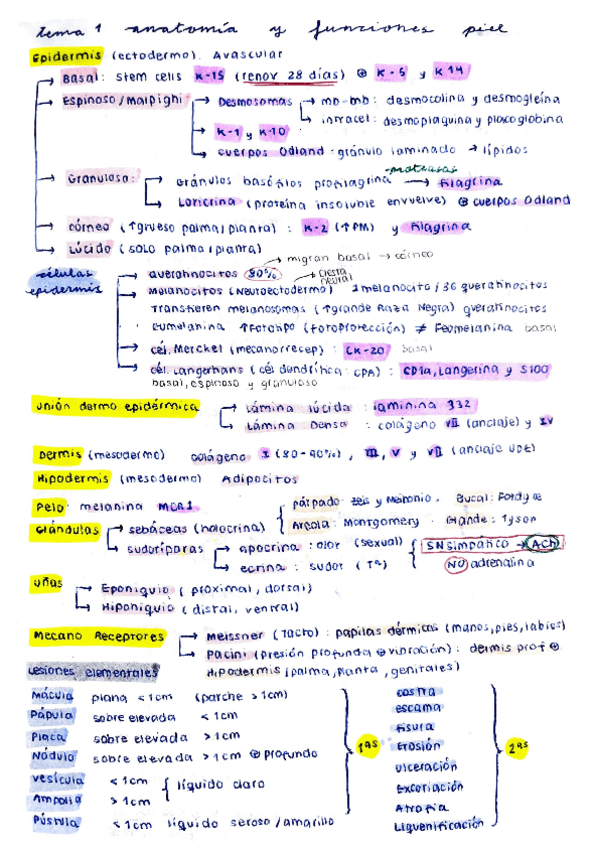 tema 1 anatomía y funciones piel
Epidermis (ectodermo). Avascular
Basal: stem cells K-15 (renov 28 días) ⊕ K-5 y K14
Espinoso/Malpighi Desmosomas mb-mb: desmocolina y desmogleína
intracel: desmoplaquina y placoglobina
K-1 y K-10
cuerpos Odland: gránulo laminado → lípidos
Granuloso: Gránulos basófilos profilagrina proteasas → filagrina
Loricrina (proteína insoluble envuelve) ⊕ cuerpos Odland
córneo (↑grueso palma/planta): K-2 (↑PM) y filagrina
Lúcido (solo palma/planta)
migran basal → córneo
células epidermis
queratinocitos 80%
Melanocitos (Neuroectodermo) cresta neural 1 melanocito/36 queratinocitos
Transfieren melanosomas (↑grande Raza Negra) queratinocitos
Eumelanina ↑Fototipo (fotoprotección) ≠ Feomelanina basal
cél. Merckel (mecanorrecep): CK-20 basal
cél. Langerhans (cél dendrítica: CPA): CD1a, Langerina y S100
basal, espinoso y granuloso
unión dermo epidérmica Lámina lúcida: laminina 332
Lámina Densa: colágeno VII (anclaje) y IV
Dermis (mesodermo) colágeno I (80-90%), III, V y VII (anclaje UDE)
Hipodermis (mesodermo) Adipocitos
Pelo: melanina MCR1
Glándulas sebáceas (holocrina) párpado: Zeis y Meibomio. Bucal: Fordyce
Areola: Montgomery. Glande: Tyson
sudoríparas apocrina: olor (sexual) SN simpático → Ach
ecrina: sudor (Tª) NO adrenalina
uñas Eponiquio (proximal, dorsal)
Hiponiquio (distal, ventral)
Mecano Receptores Meissner (Tacto): papilas dérmicas (manos, pies, labios)
Pacini (presión profunda ⊕ vibración): dermis prof ⊕
Hipodermis (palma, planta, genitales)
Lesiones elementales
Mácula plana < 1cm (parche > 1cm)
Pápula sobre elevada < 1cm
Placa sobre elevada > 1cm
Nódulo sobre elevada > 1cm ⊕ profundo
vesícula < 1cm líquido claro
Ampolla > 1cm
Pústula < 1cm líquido seroso/amarillo
1ªs
costra
escama
fisura
Erosión
ulceración
Excoriación
Atrofia
Liquenificación
2ªs